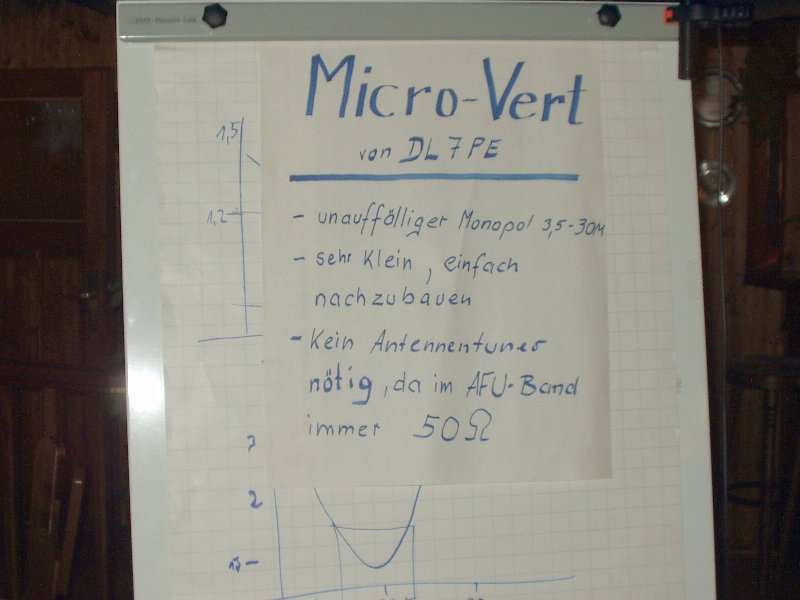 Micro-Vert
von DL7PE
- unauffälliger Monopol 3,5-30M
- sehr klein, einfach
nachzubauen
- Kein Antennentuner
nötig, da im AFU-Band
immer 50Ω
1,5
1,2
3
2